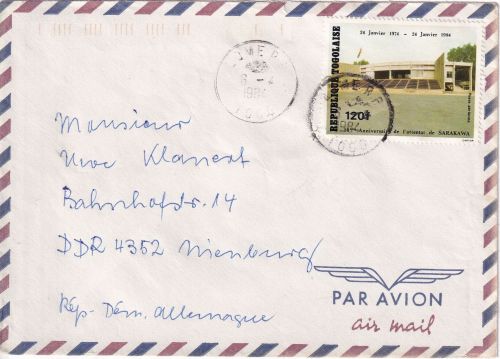 LOME R.P.
6 - 4
1984
TOGO
REPUBLIQUE TOGOLAISE
24 Janvier 1974 - 24 Janvier 1984
120f
Anniversaire de l'attentat de SARAKAWA
LOME R.P.
1984
TOGO
Monsieur
Uwe Klanert
Bahnhofstr. 14
DDR 4352 Nienburg
Rép. Dém. Allemagne
PAR AVION
air mail